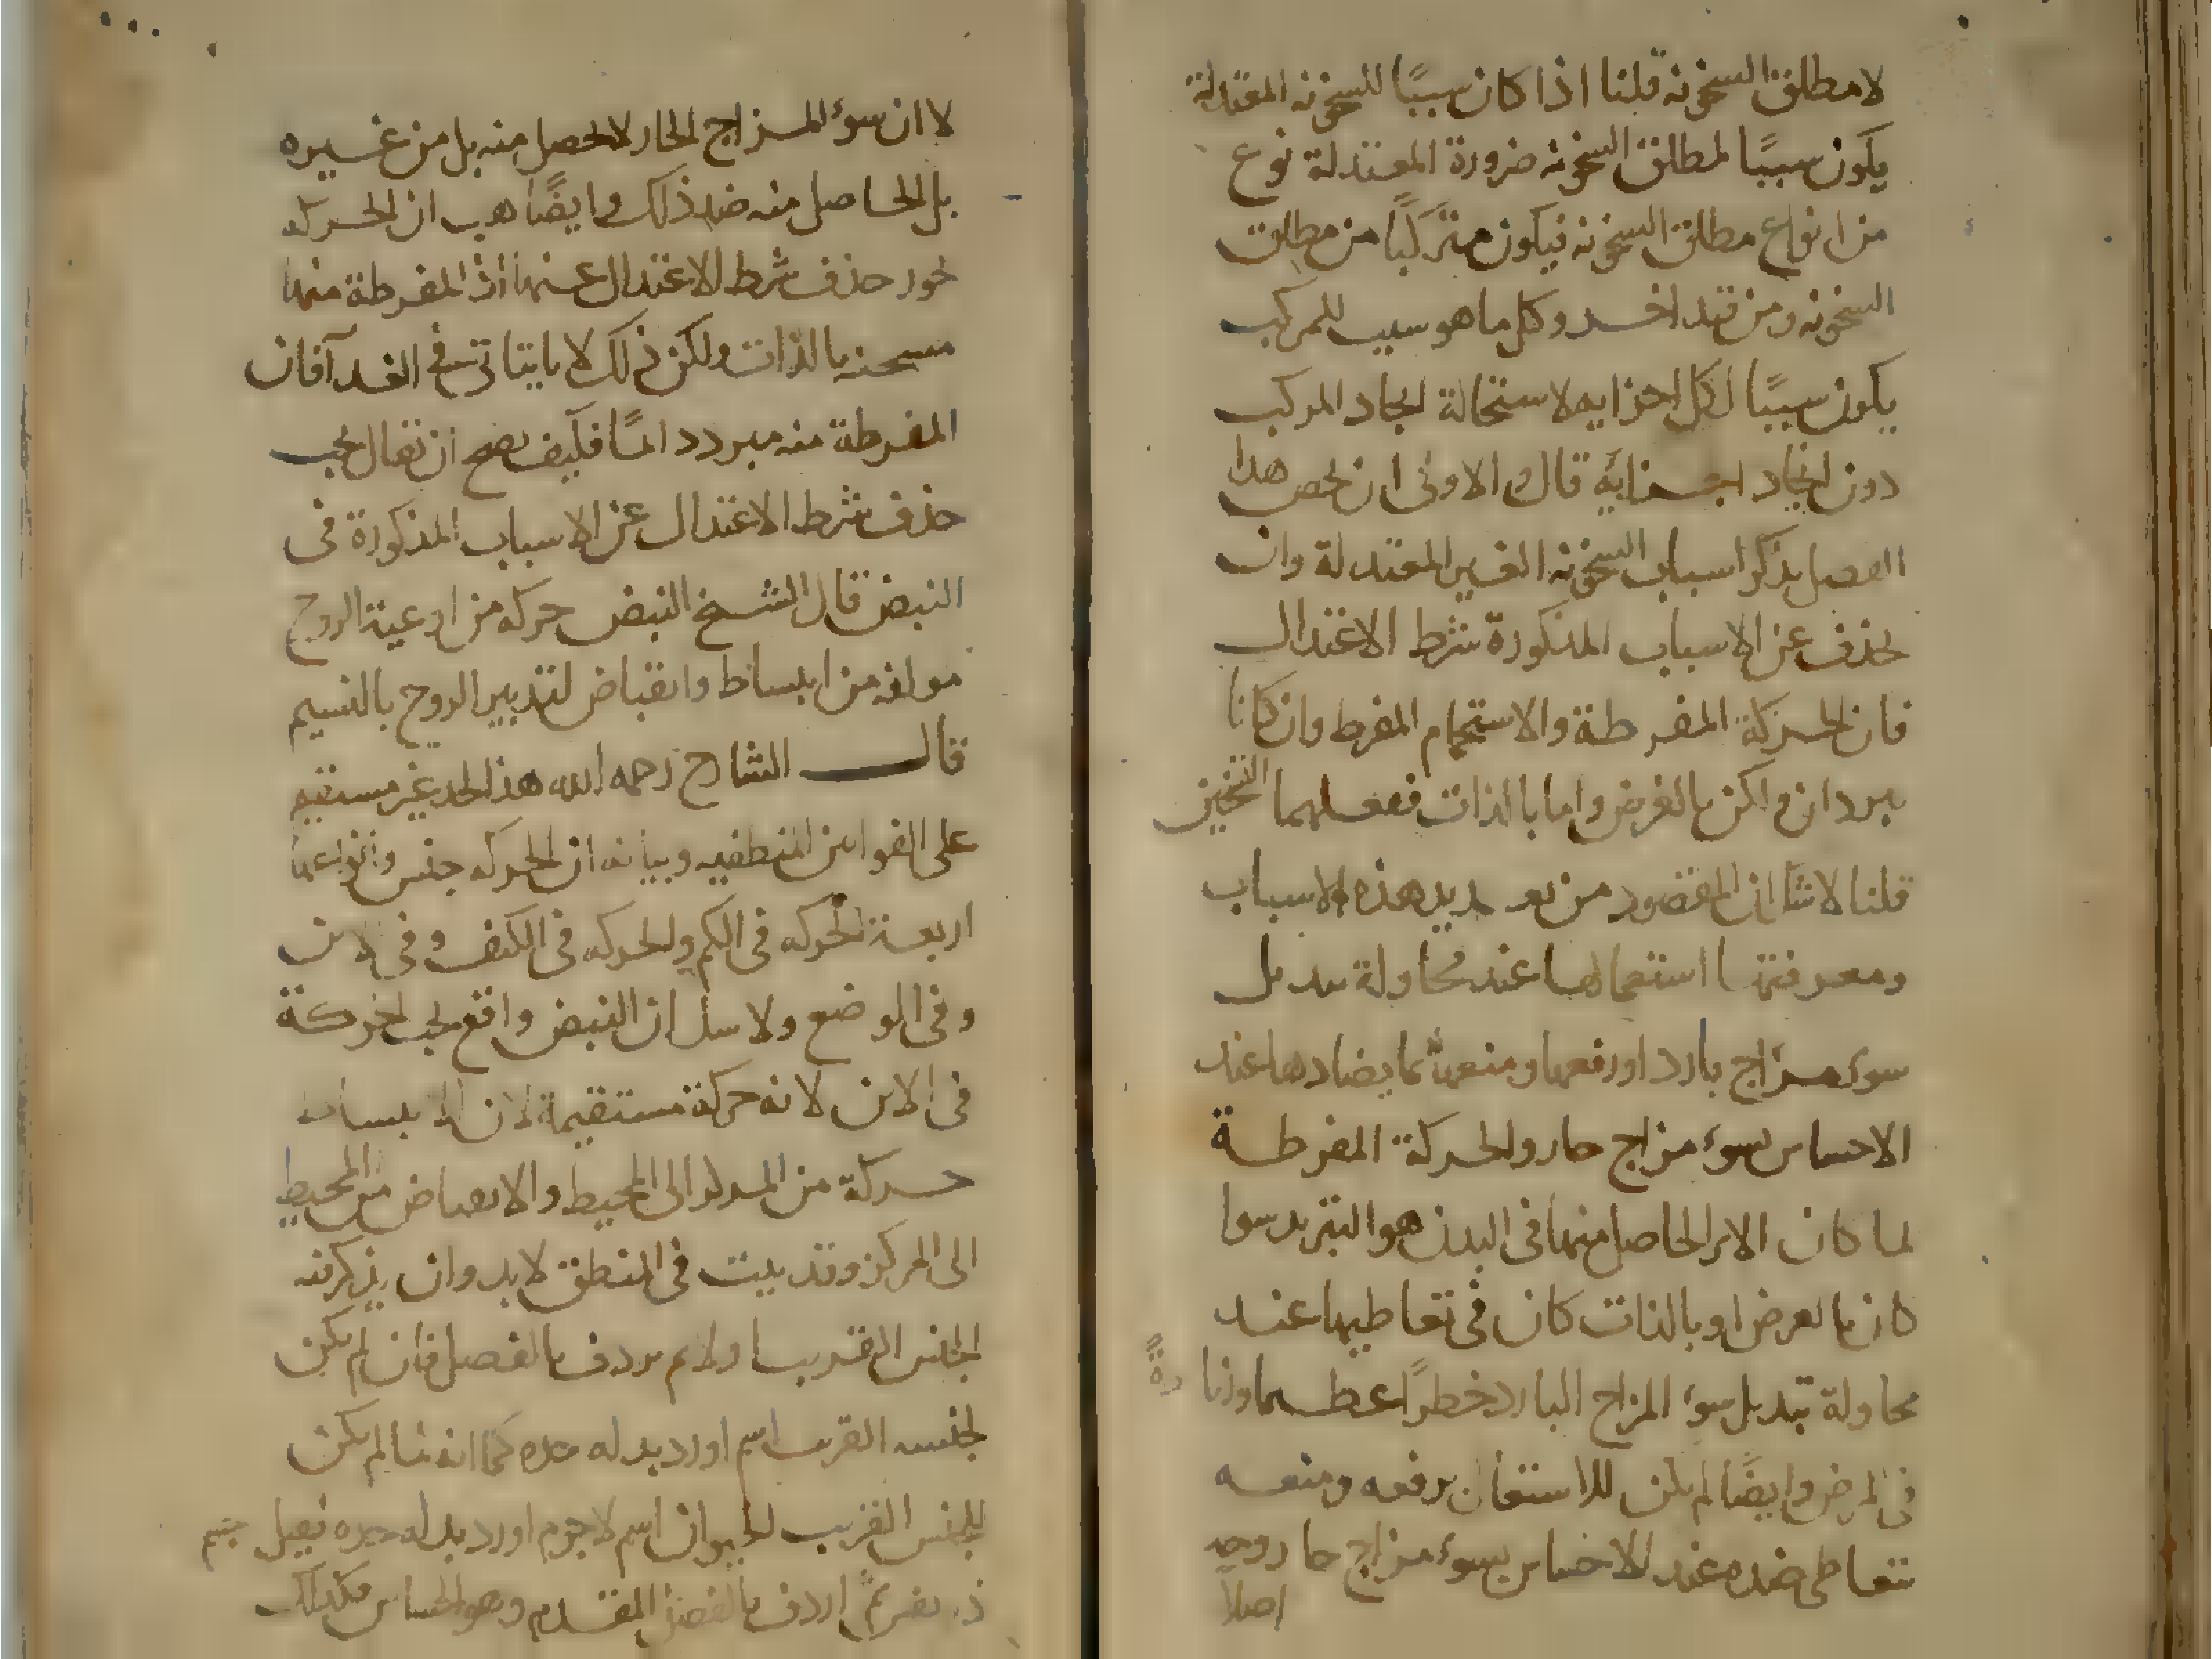 لا مطلق السخونه قلنا اذا كان سببًا للسخونه المعتدلة
يكون سببًا لمطلق السخونه ضرورة المعتدلة نوع
من انواع مطلق السخونه فيكون متركبًا من مطلق
السخونه ومن قيد اخر وكل ما هو سبب للمركب
يكون سببًا لكل اجزايه لاستحالة ايجاد المركب
دون ايجاد اجزايه قال والاولى ان يخص هذا
الفصل بذكر اسباب السخونه الغير المعتدلة وان
يحذف عن الاسباب المذكورة شرط الاعتدال
فان الحركة المفرطة والاستحمام المفرط وان كانا
يبردان ولكن بالعرض واما بالذات ففعلهما التسخين
قلنا لاشك ان المقصود من تعديد هذه الاسباب
ومعرفتها استعمالها عند محاولة تبديل
سوء مزاج بارد او رفعها ومنعها بما يضادها عند
الاحساس بسوء مزاج حار والحركة المفرطة
لما كان الاثر الحاصل منها في البدن هو التبريد سوا
كان بالعرض او بالذات كان في تعاطيها عند
محاولة تبديل سوء المزاج البارد خطرًا عظيما وزيادةً
في المرض وايضًا لم يكن للاشتغال برفعه ومنعه
بتعاطى ضده عند الاحساس بسوء مزاج حار وجه
اصلا
لا ان سوء المزاج الحار لا يحصل منه بل من غيره
بل الحاصل منه ضد ذلك وايضًا هب ان الحركه
يجوز حذف شرط الاعتدال عنها اذ المفرطة منها
مسخنه بالذات ولكن ذلك لا يتاتى في الغدآ فان
المفرطة منه مبرد دائمًا فكيف يصح ان يقال يجب
حذف شرط الاعتدال عن الاسباب المذكورة في
النبض قال الشيخ النبض حركه من اوعية الروح
مولفه من انبساط وانقباض لتدبير الروح بالنسيم
قال الشارح رحمه الله هذا الحد غير مستقيم
على القوانين المنطقيه وبيانه ان الحركه جنس وانواعها
اربعة الحركه في الكم والحركه في الكيف وفي الاين
وفي الوضع ولا شك ان النبض واقع تحت الحركة
في الاين لانه حركة مستقيمة لان الانبساط
حركة من المركز الى المحيط والانقباض من المحيط
الى المركز وقد بينت في المنطق لابد وان يذكر فيه
الجنس القريب اولا ثم يردف بالفصل فان لم يكن
لجنسه القريب اسم اورد بدله حده كما انه لما لم يكن
للجنس القريب لحيوان اسم لا جرم اورد بدله حده فقيل جسم
ذو نفس ثم اردف بالفصل المقدم وهو الحساس فكذلك